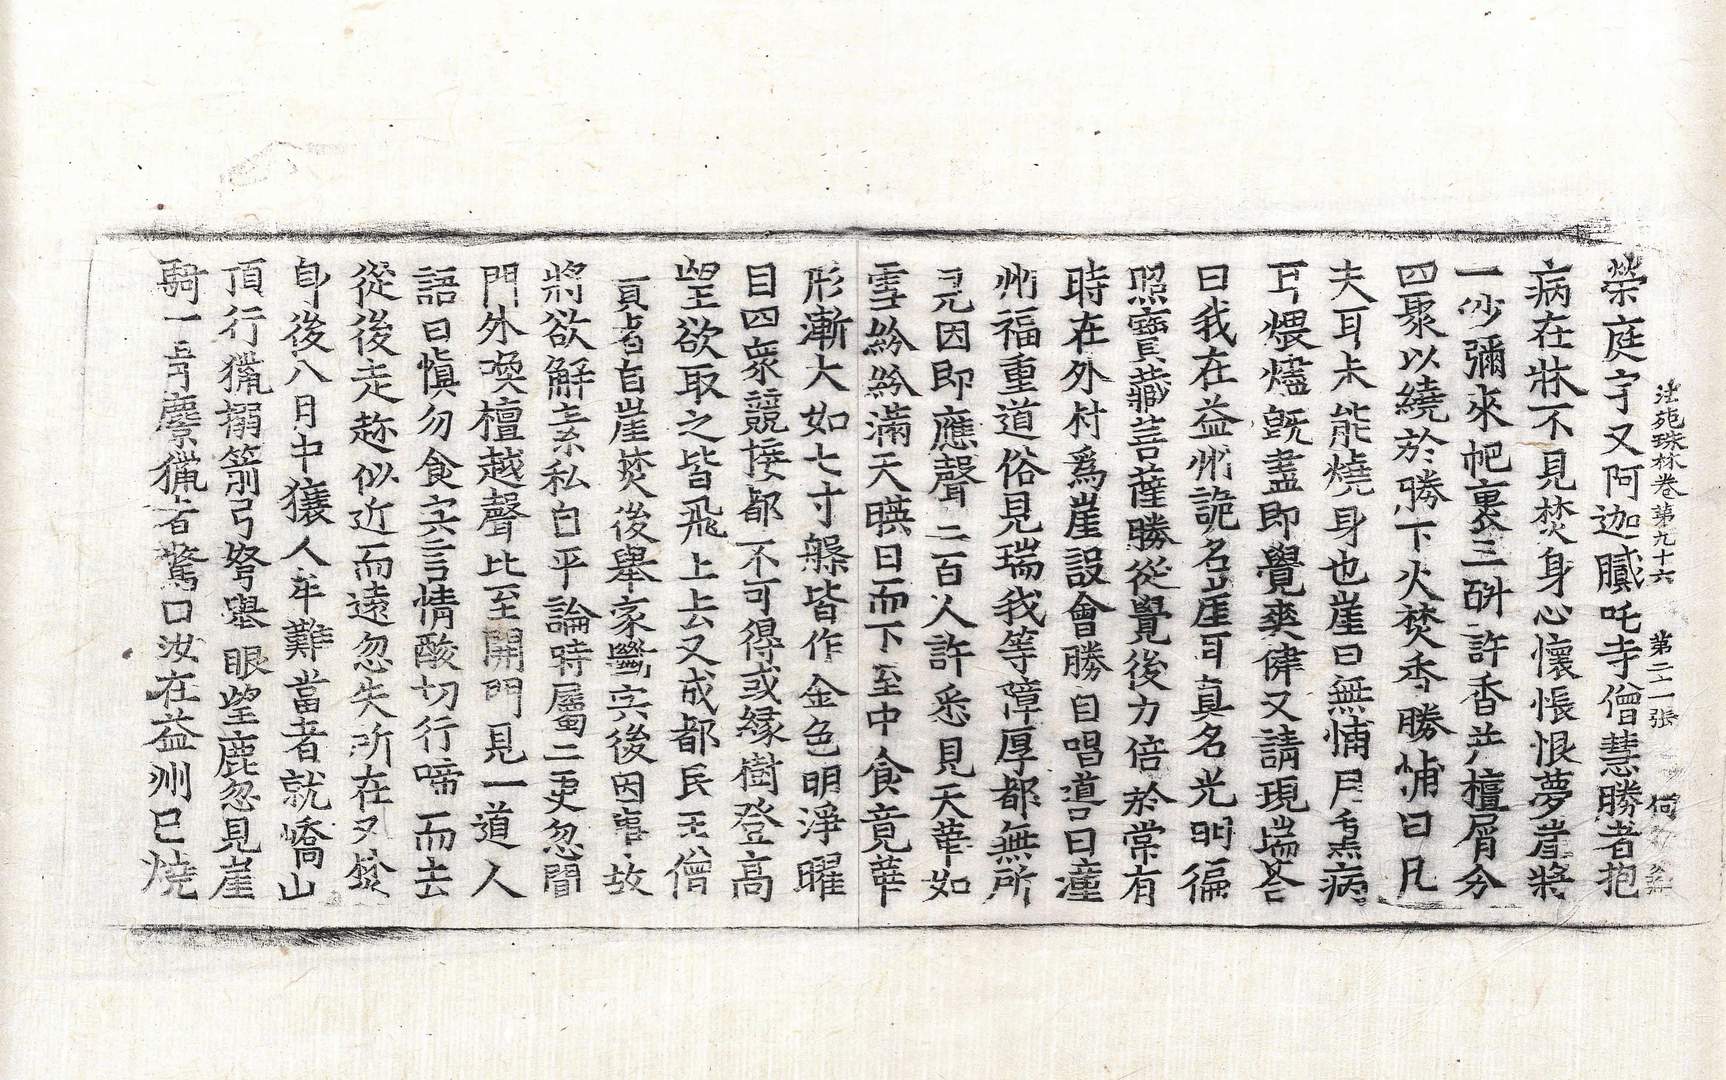 法苑珠林卷第九十六 第二十一張
榮庭宇又阿迦膩吒寺僧慧勝者抱
病在牀不見焚身心懷悵恨夢崖將
一沙彌來帊裹三斛許香并檀屑分
四聚以繞於勝下火焚香勝怖曰凡
夫耳未能燒身也崖曰無怖用熏病
耳煨燼旣盡即覺爽健又請現瑞荅
曰我在益州詭名崖耳真名光明徧
照寶藏菩薩勝從覺後力倍於常有
時在外村爲崖設會勝自唱導曰潼
州福重道俗見瑞我等障厚都無所
見因即應聲二百人許悉見天華如
雪紛紛滿天暎日而下至中食竟華
形漸大如七寸槃皆作金色明淨曜
目四衆競接都不可得或緣樹登高
望欲取之皆飛上去又成都民王僧
貴者自崖焚後舉家斷宍後因事故
將欲解素私自平論時屬二更忽聞
門外喚檀越聲比至開門見一道人
語曰愼勿食宍言情酸切行啼而去
從後走趂似近而遠忽失所在又焚
身後八月中獽人牟難當者就嶠山
頂行獵搦箭弓弩舉眼望鹿忽見崖
騎一青麖獵者驚曰汝在益州已燒